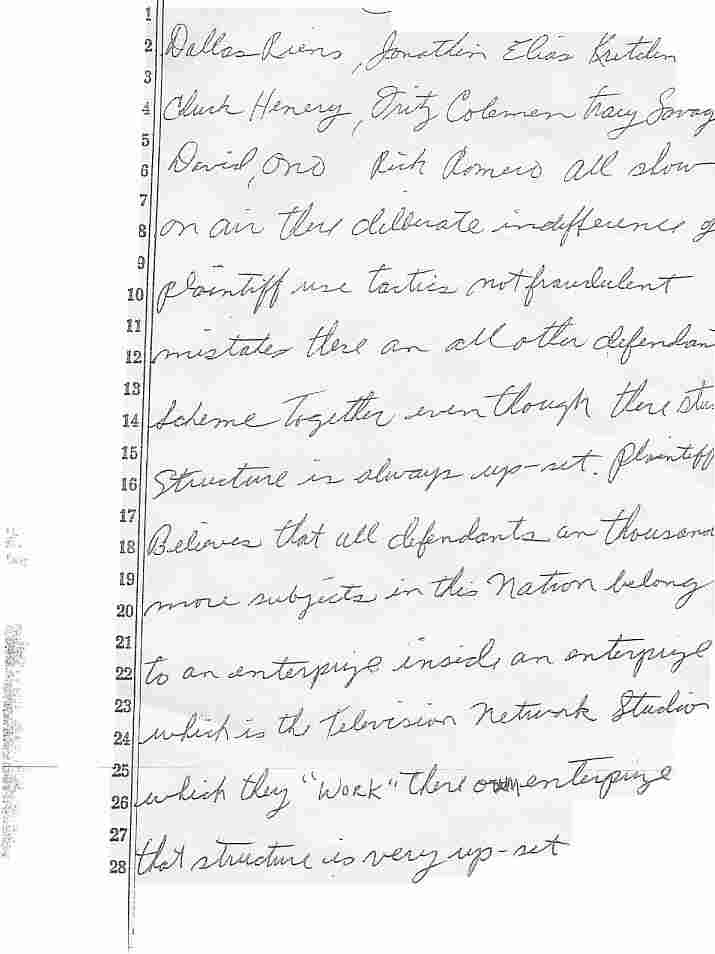 1
2 Dallas Riens, Jonathin Elias Kritchen
3
4 Chuck Henery, Fritz Colemen Tracy Savag
5
6 David, Ono Rick Romero all show
7
8 on air there diliberate indifference of
9
10 plaintiff use tactics not fraudulent
11
12 mistakes these an all other defendan
13
14 scheme Together even though there
15
16 structure is always up-set. Plaintiff
17
18 Believes that all defendants an thousand
19
20 more subjects in this Nation belong
21
22 to an enterprize inside an enterprize
23
24 which is the Television Network Studio
25
26 which they "WORK" there own enterprize
27
28 that structure is very up-set